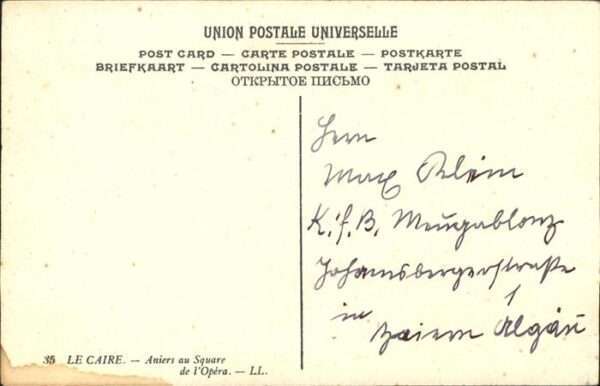 UNION POSTALE UNIVERSELLE
POST CARD — CARTE POSTALE — POSTKARTE
BRIEFKAART — CARTOLINA POSTALE — TARJETA POSTAL
ОТКРЫТОЕ ПИСЬМО
Herrn
Max Klein
K.f.B. Neugablonz
Johannisbergerstraße
1
in
Baiern Algäu
35 LE CAIRE. — Aniers au Square
de l'Opéra. — LL.